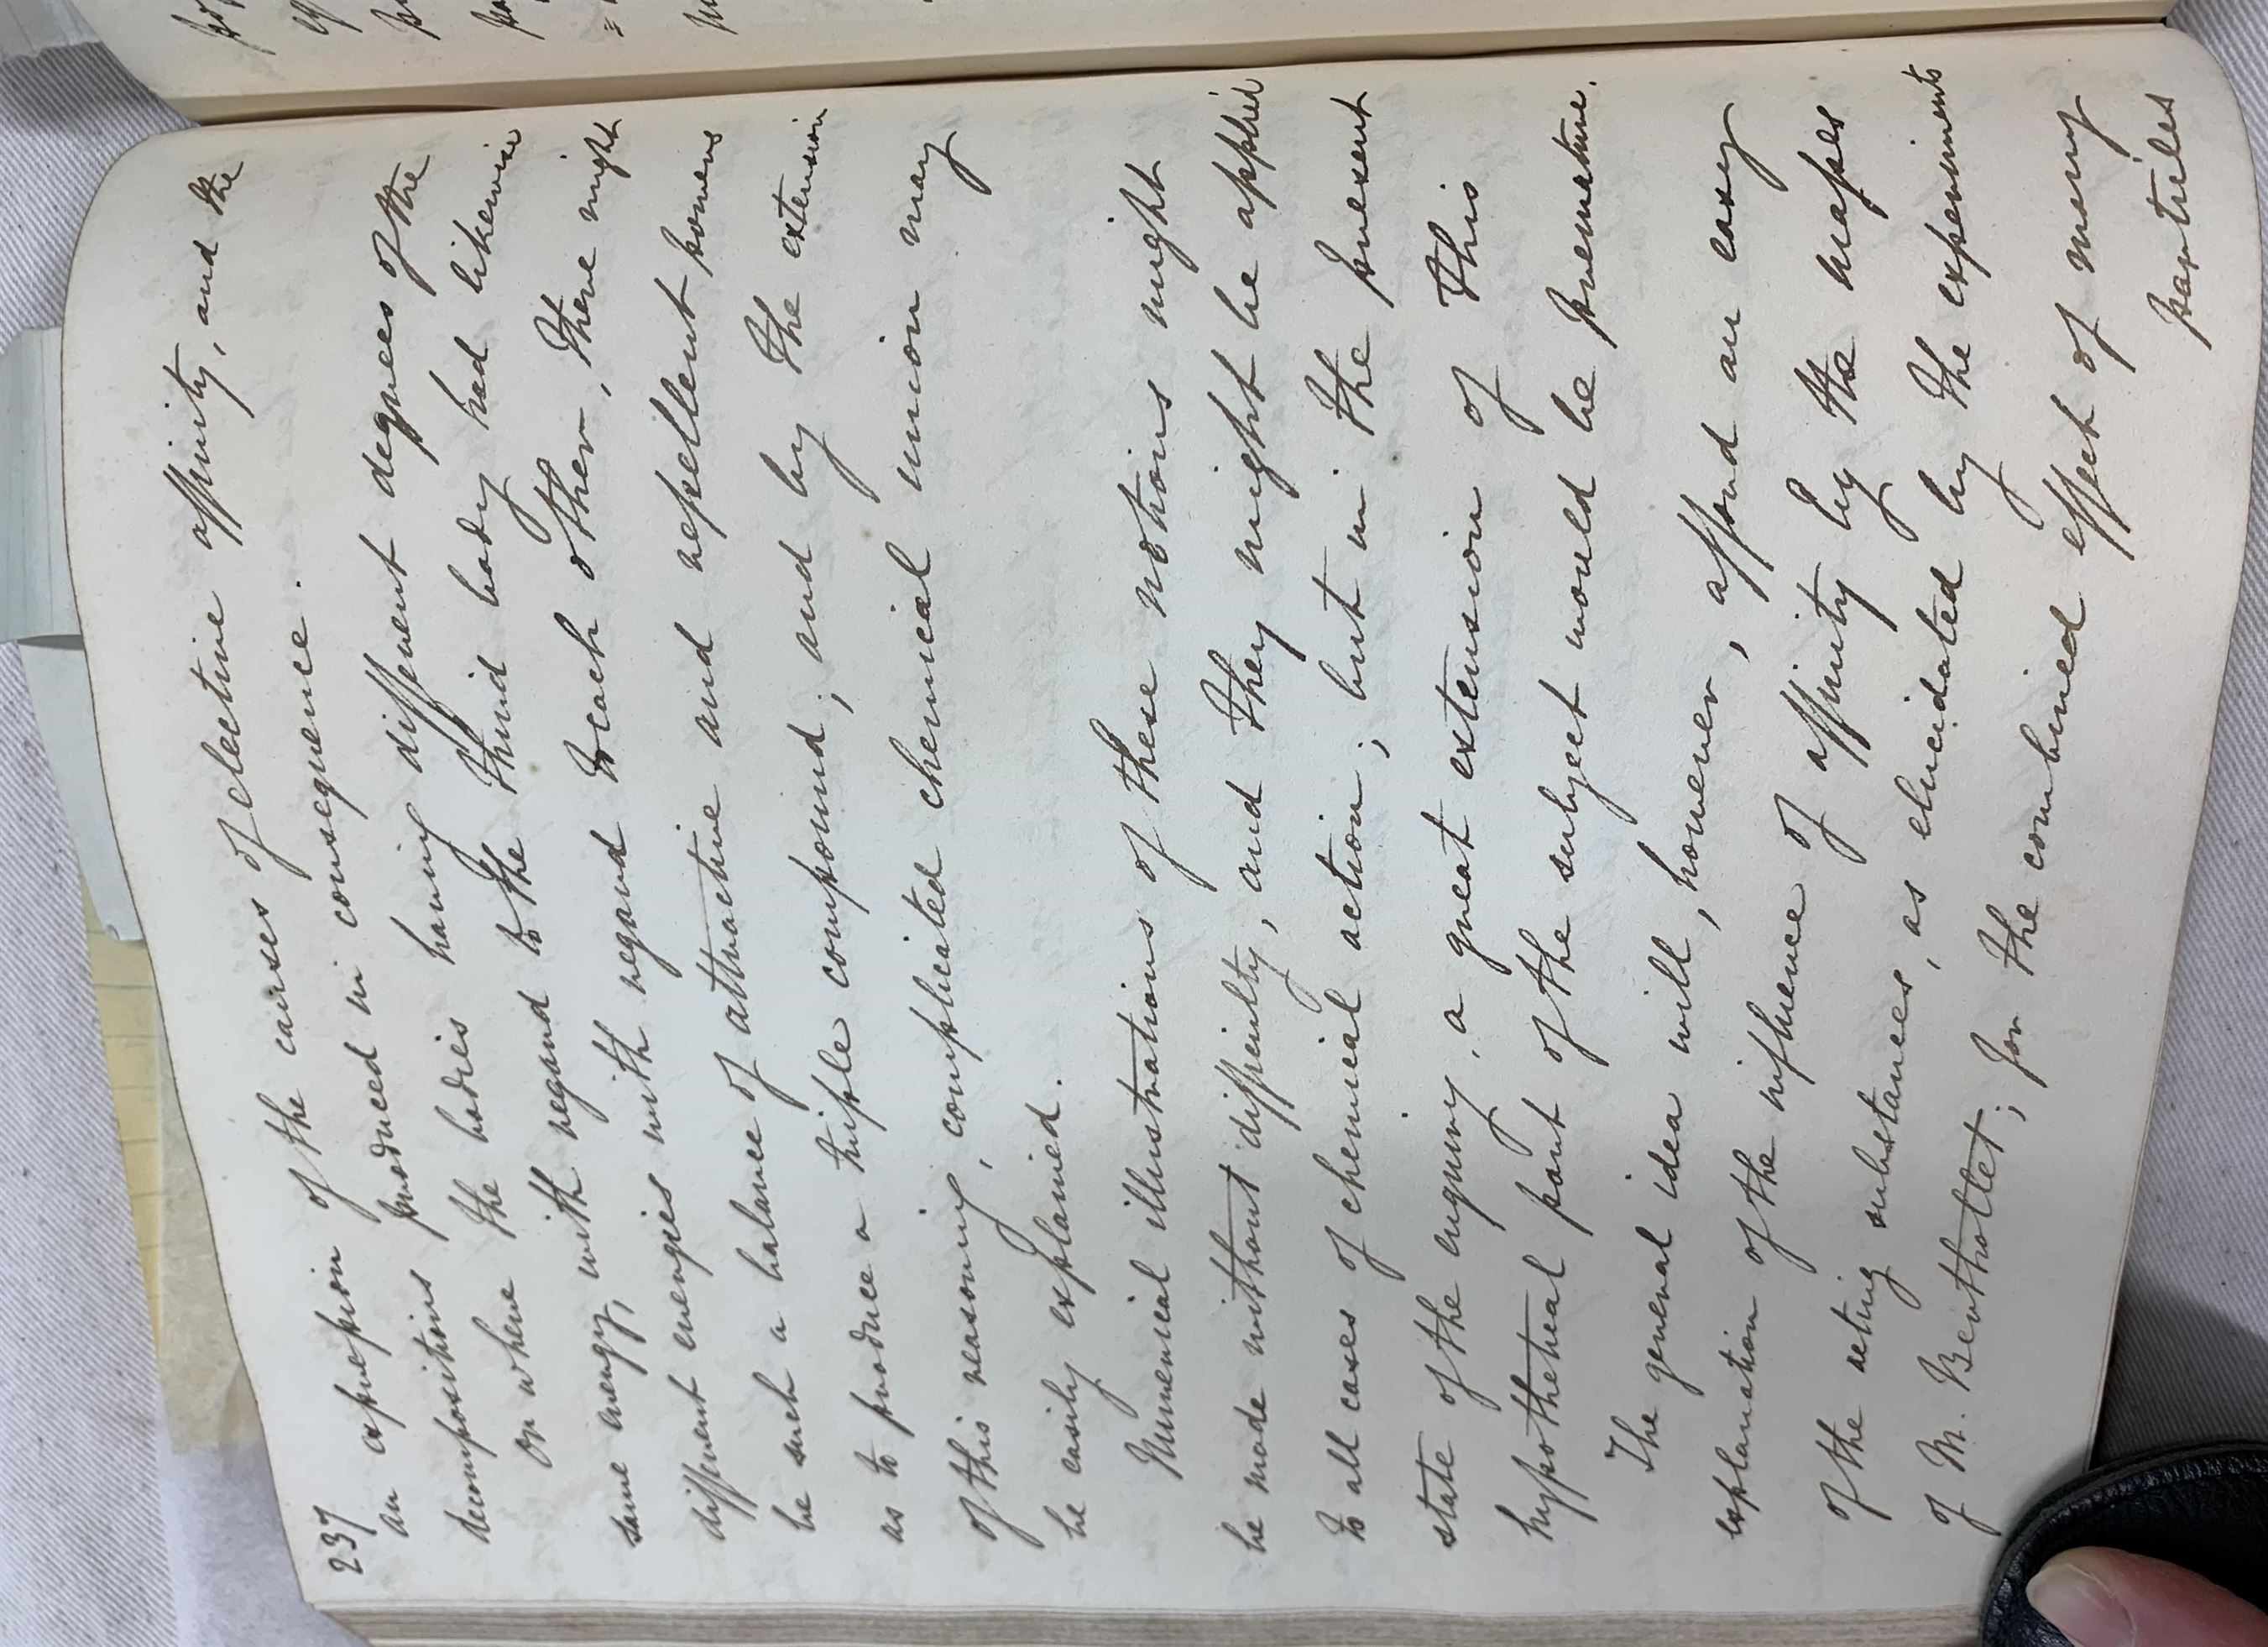 237
an expression of the causes of elective affinity, and the
decompositions produced in consequence.
Or where the bodies having different degrees of the
same energy, with regard to the third body had likewise
different energies with regard to each other, there might
be such a balance of attractive and repellent powers
as to produce a triple compound; and by the extension
of this reasoning, complicated chemical union may
be easily explained.
Numerical illustrations of these notions might
be made without difficulty, and they might be applied
to all cases of chemical action; but in the present
state of the enquiry, a great extension of this
hypothetical part of the subject would be premature.
The general idea will, however, afford an easy
explanation of the influence of affinity by the masses
of the acting substances, as elucidated by the experiments
of M. Berthollet; for the combined effect of many
particles